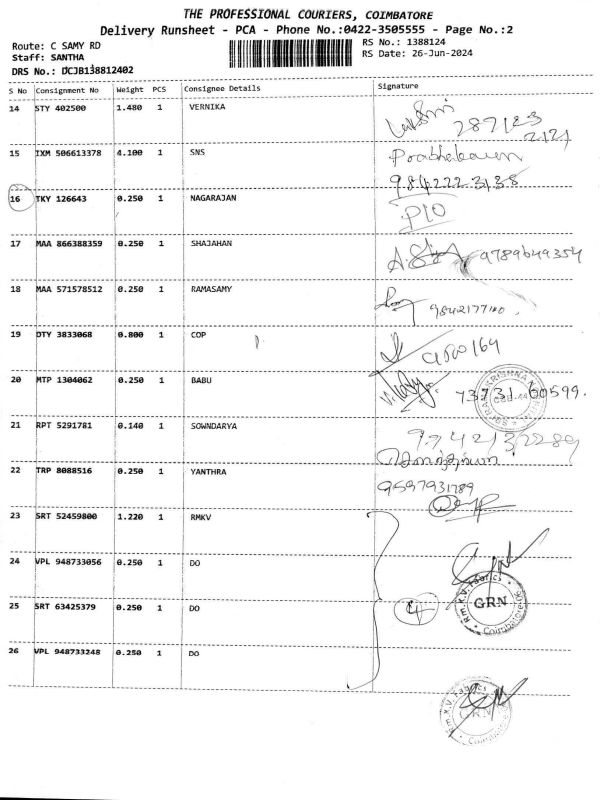 THE PROFESSIONAL COURIERS, COIMBATORE
Delivery Runsheet - PCA - Phone No.:0422-3505555 - Page No.:2
Route: C SAMY RD
Staff: SANTHA
DRS No.: DCJB138812402
RS No.: 1388124
RS Date: 26-Jun-2024
S No Consignment No Weight PCS Consignee Details Signature
14 STY 402500 1.480 1 VERNIKA
15 IXM 506613378 4.100 1 SNS Prabhakaran
9842223138
16 TKY 126643 0.250 1 NAGARAJAN P10
17 MAA 866388359 0.250 1 SHAJAHAN 9789649354
18 MAA 571578512 0.250 1 RAMASAMY
19 DTY 3833068 0.800 1 COP
20 MTP 1304062 0.250 1 BABU 73731 60599.
21 RPT 5291781 0.140 1 SOWNDARYA
22 TRP 8088516 0.250 1 YANTHRA 9597931789
23 SRT 52459800 1.220 1 RMKV
24 VPL 948733056 0.250 1 DO
25 SRT 63425379 0.250 1 DO 4
R.m.K.V. Fabrics GRN Coimbatore
26 VPL 948733248 0.250 1 DO
R.m.K.V. Fabrics GRN Coimbatore